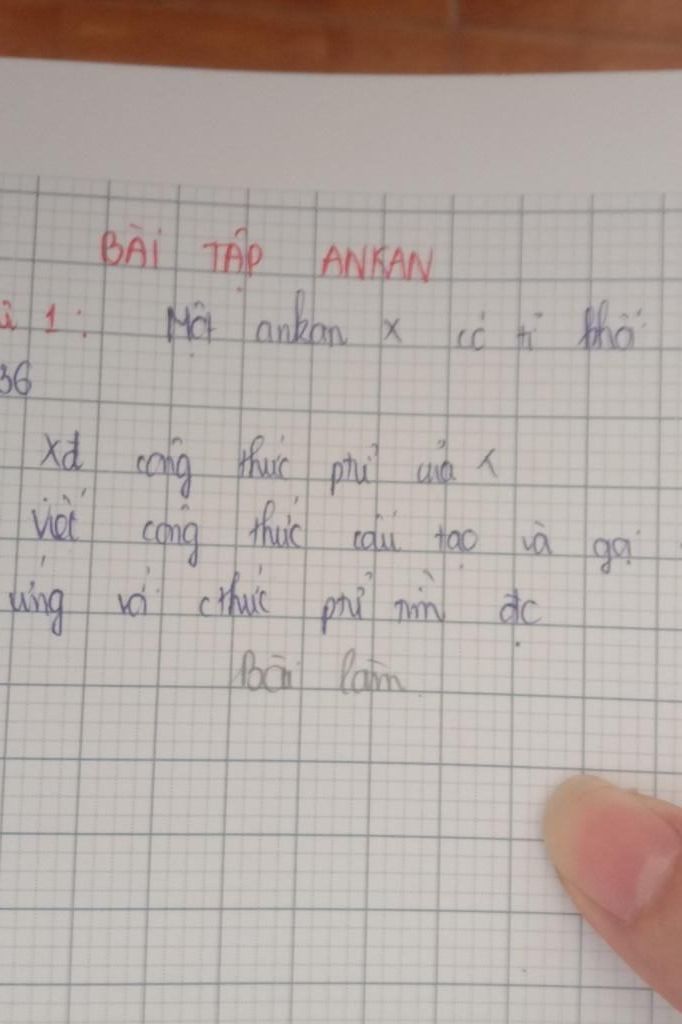 BÀI TẬP ANKAN
i 1: Một ankan x có tỉ khối
36
xđ công thức ptử của x
viết công thức cấu tạo và gọi
ứng với cthức ptử tìm đc
Bài làm